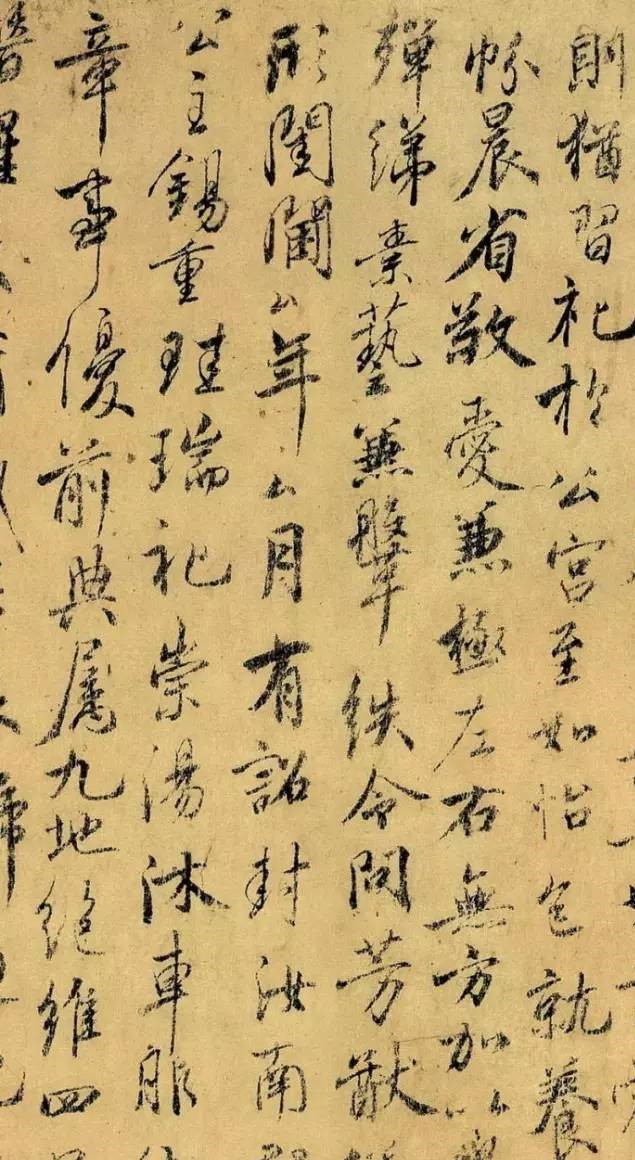 則猶習礼於公宮至如怡色就養
帉晨省敬愛兼極左右無方加以
殫綈素藝兼鞶紩令問芳猷
形閨閫厶年厶月有詔封汝南
公主錫重珪瑞礼崇湯沐車服
章事優前典属九地絕維四